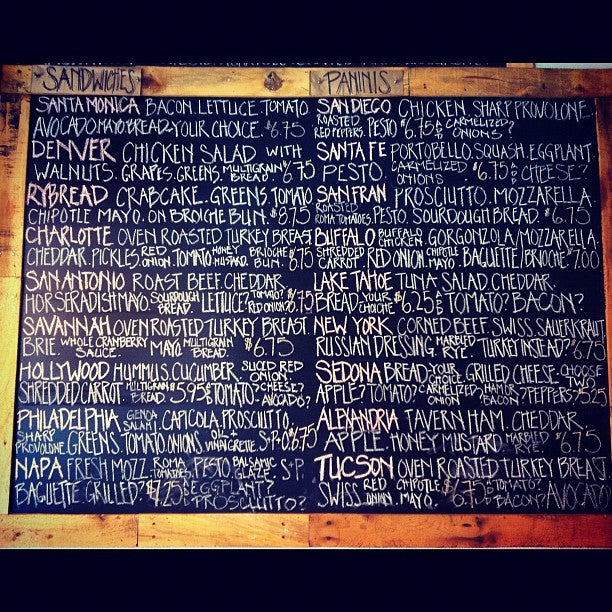 SANDWICHES
SANTA MONICA BACON. LETTUCE. TOMATO
AVOCADO. MAYO. BREAD-YOUR CHOICE. $6.75
DENVER CHICKEN SALAD WITH
WALNUTS. GRAPES. GREENS. MULTIGRAIN BREAD $6.75
RYBREAD CRABCAKE. GREENS. TOMATO
CHIPOTLE MAYO. ON BROICHE BUN. $8.75
CHARLOTTE OVEN ROASTED TURKEY BREAST
CHEDDAR. PICKLES. RED ONION. TOMATO. HONEY MUSTARD. BRIOCHE BUN. 6.75
SAN ANTONIO ROAST BEEF. CHEDDAR.
HORSERADISH MAYO. SOURDOUGH BREAD. LETTUCE? TOMATO? RED ONION? $6.75
SAVANNAH OVEN ROASTED TURKEY BREAST.
BRIE. WHOLE CRANBERRY SAUCE. MAYO. MULTIGRAIN BREAD. $6.75
HOLLYWOOD HUMMUS. CUCUMBER. SLICED RED ONION
SHREDDED CARROT. MULTIGRAIN BREAD $5.95 ADD TOMATO? CHEESE? AVOCADO?
PHILADELPHIA GENOA SALAMI. CAPICOLA. PROSCIUTTO.
SHARP PROVOLONE. GREENS. TOMATO. ONIONS. OIL + VINAIGRETTE. S+P. $6.75
NAPA FRESH MOZZ. ROMA TOMATOES. PESTO. BALSAMIC GLAZE. S+P
BAGUETTE. GRILLED? $7.25 ADD EGGPLANT? PROSCIUTTO?
PANINIS
SAN DIEGO CHICKEN. SHARP PROVOLONE.
ROASTED RED PEPPERS. PESTO $6.75 ADD CARMELIZED ONIONS?
SANTA FE PORTOBELLO. SQUASH. EGGPLANT.
PESTO. CARMELIZED ONIONS $6.75 ADD CHEESE?
SAN FRAN PROSCIUTTO. MOZZARELLA.
ROASTED ROMA TOMATOES. PESTO. SOURDOUGH BREAD. $6.75
BUFFALO BUFFALO CHICKEN. GORGONZOLA/MOZZARELLA.
SHREDDED CARROT RED ONION. CHIPOTLE MAYO. BAGUETTE/BRIOCHE $7.00
LAKE TAHOE TUNA SALAD. CHEDDAR.
BREAD-YOUR CHOICHE $6.25 ADD TOMATO? BACON?
NEW YORK CORNED BEEF. SWISS. SAUERKRAUT
RUSSIAN DRESSING. MARBLED RYE. TURKEY INSTEAD? $6.75
SEDONA BREAD YOUR CHOICE. GRILLED CHEESE-CHOOSE TWO-
APPLE? TOMATO? CARMELIZED ONION HAM OR BACON? PEPPERS? $5.25
ALEXANDRIA TAVERN HAM. CHEDDAR.
APPLE. HONEY MUSTARD. MARBLED RYE. $6.75
TUCSON OVEN ROASTED TURKEY BREAST
SWISS. RED ONION. CHIPOTLE MAYO. $6.75 ADD TOMATO? BACON? AVOCADO?